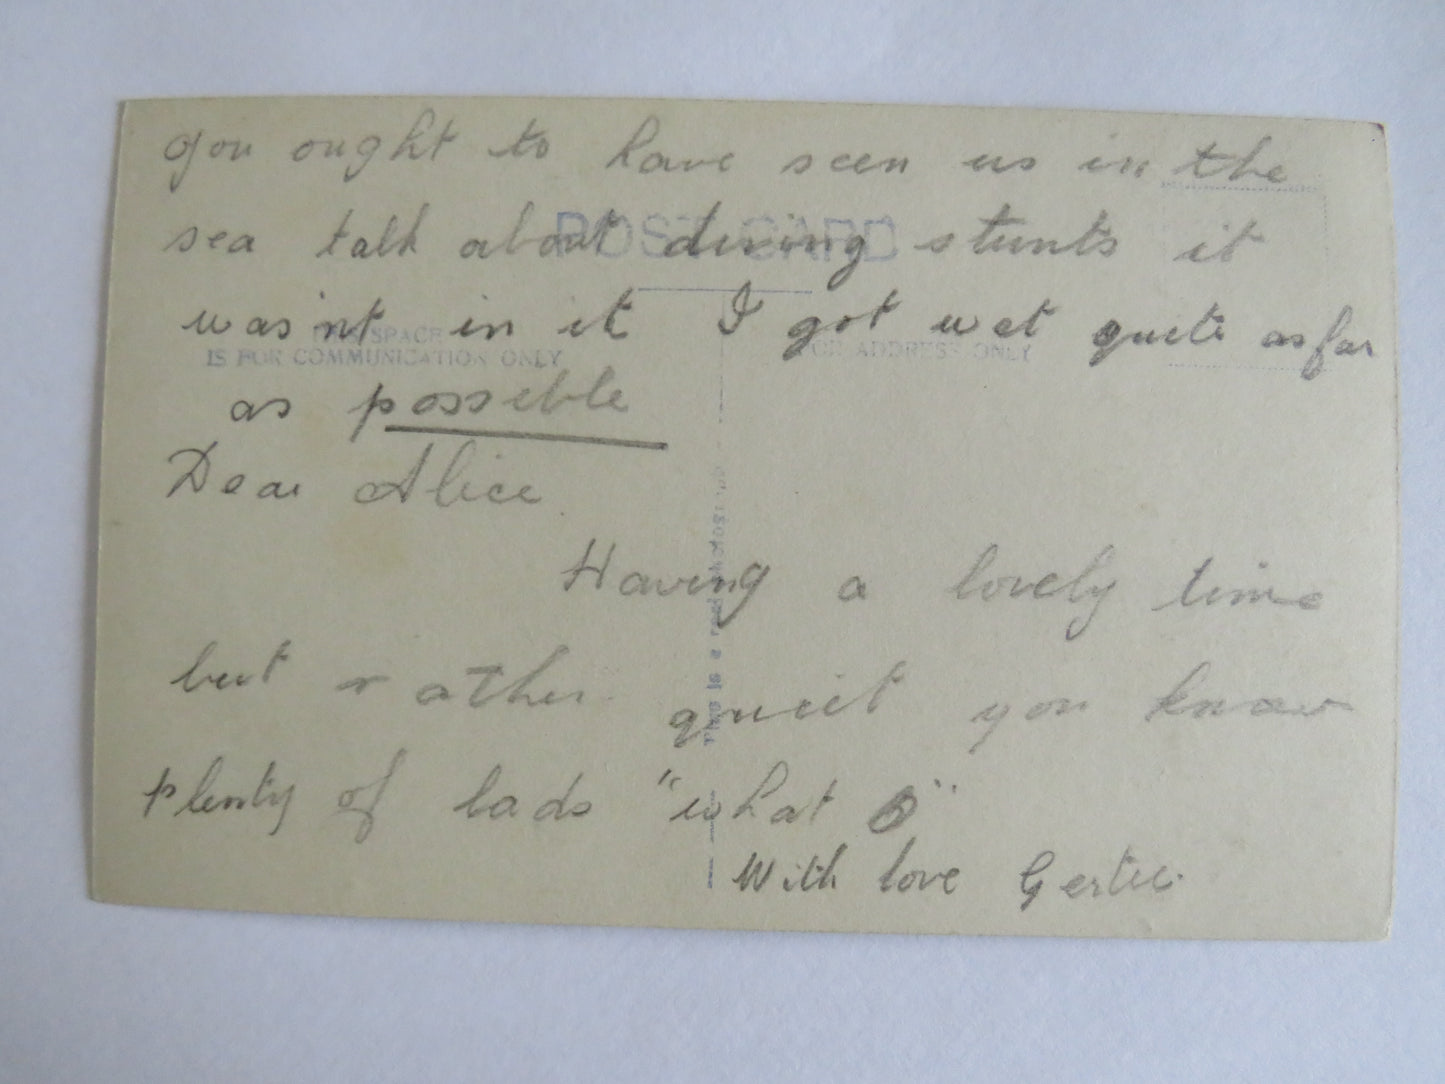 you ought to have seen us in the
POST CARD
sea talk about diving stunts it
was'nt in it I got wet quite as far
THIS SPACE
IS FOR COMMUNICATION ONLY
FOR ADDRESS ONLY
as possible
Dear Alice
Having a lovely time
but rather quiet you know
plenty of lads "what O"
With love Gertie.
This is a real photograph